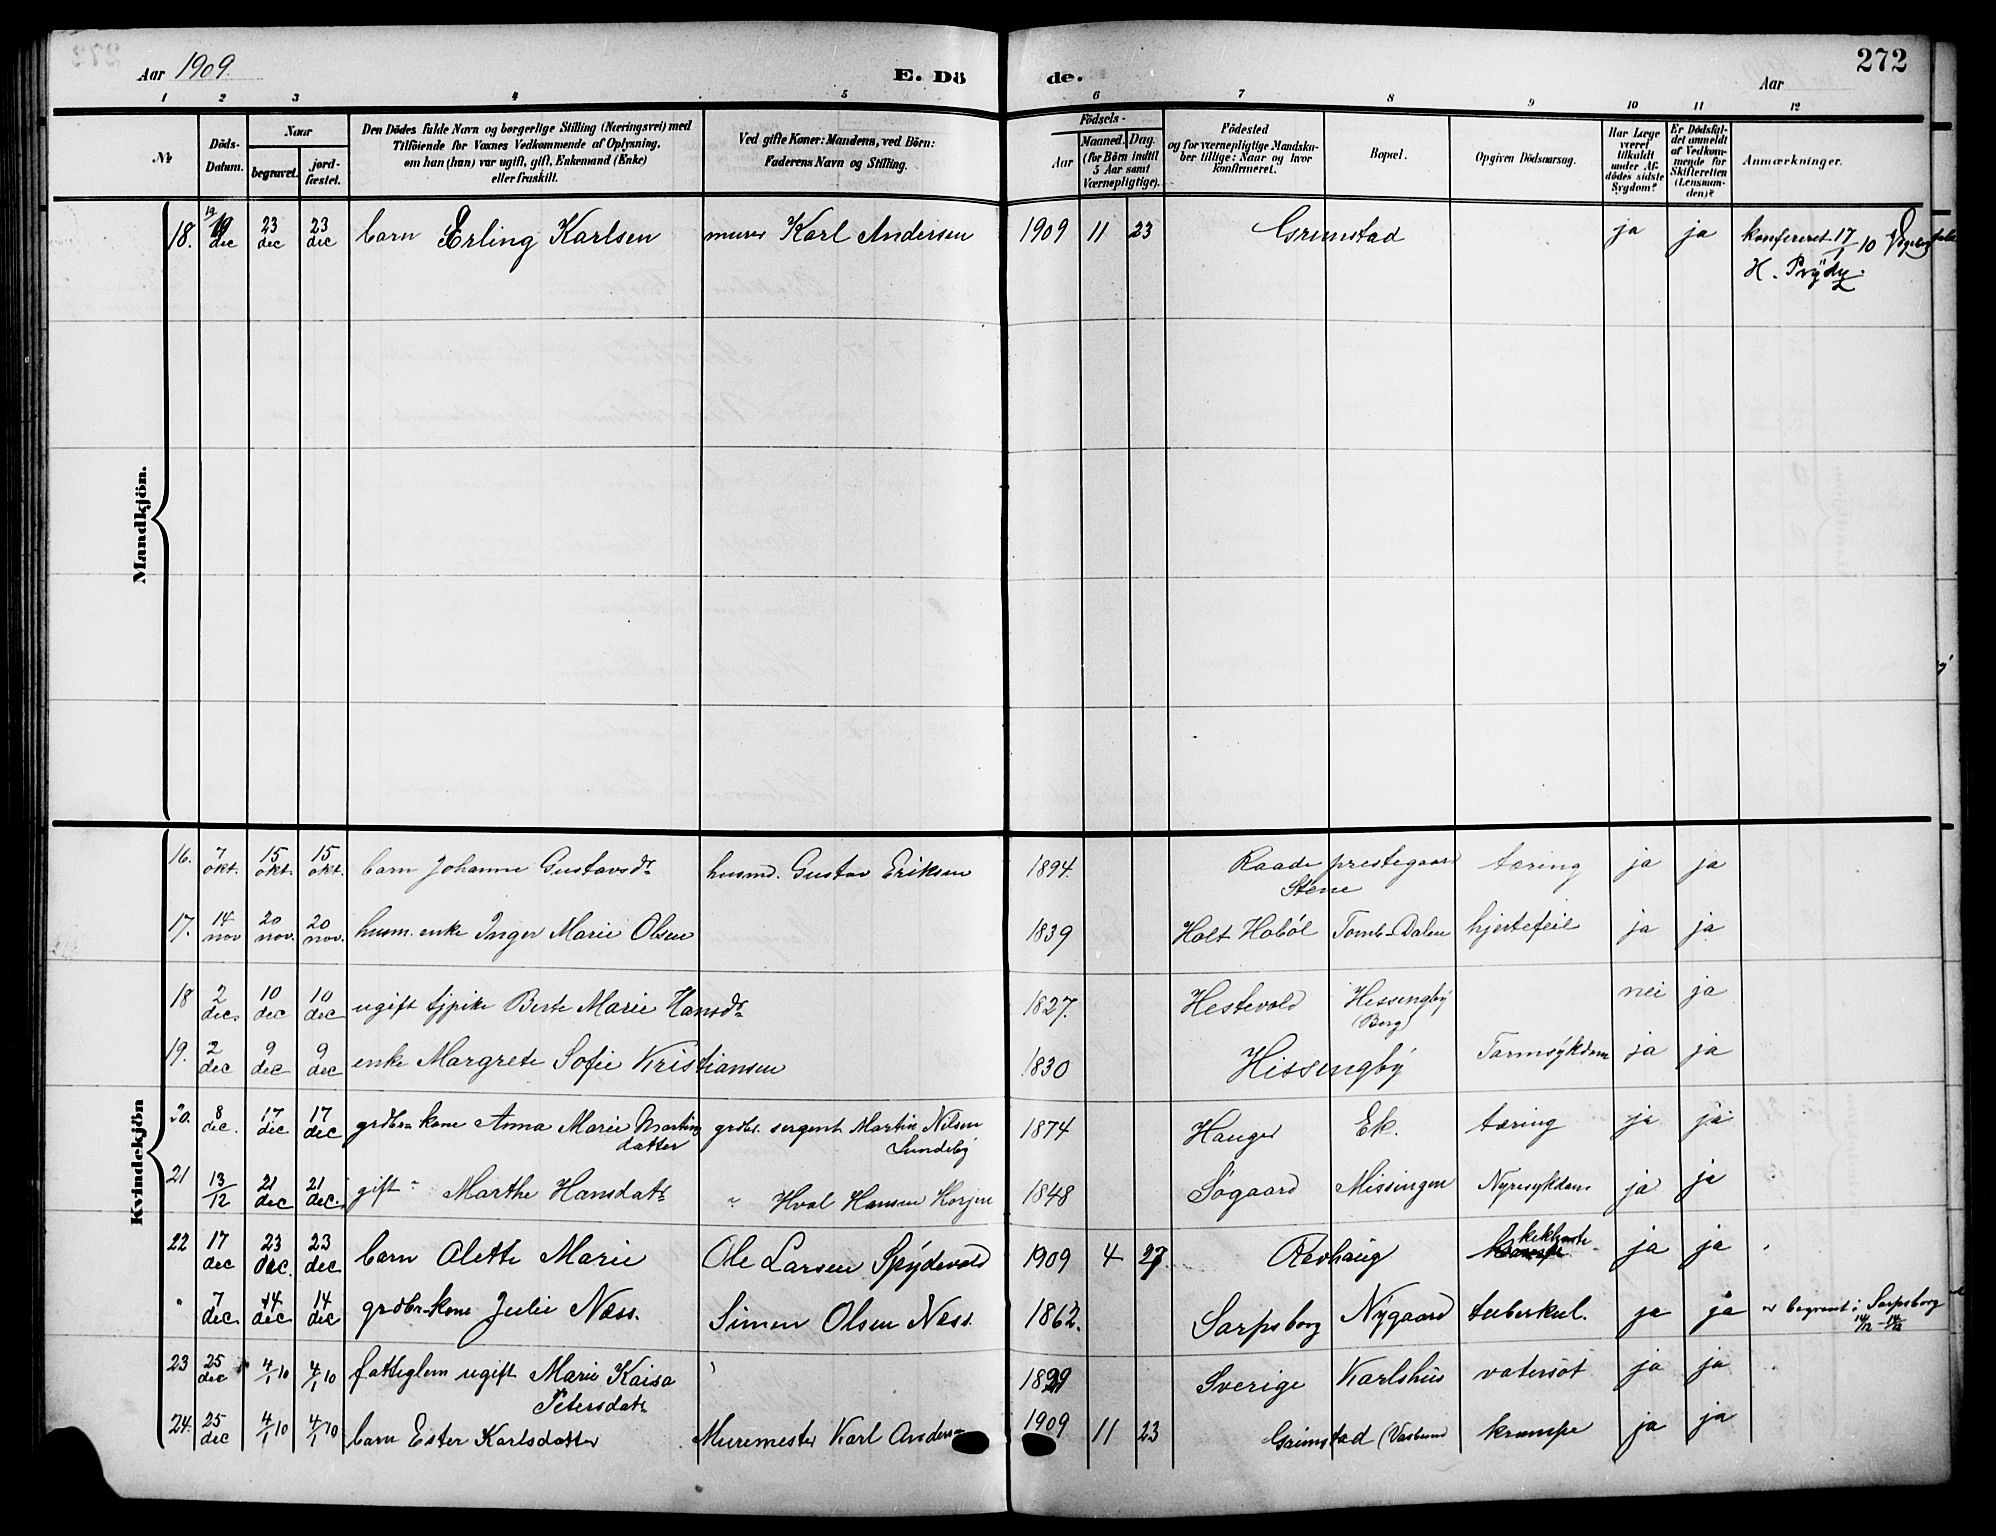 Aar 1909. E. Dö de. Aar 272
1 2 3 4 5 6 7 8 9 10 11 12
№ Döds-Datum. Naar begravet. jordfæstet. Den Dödes fulde Navn og borgerlige Stilling (Næringsvei) med Tilföiende for Voxnes Vedkommende af Oplysning, om han (hun) var ugift, gift, Enkemand (Enke) eller fraskilt. Ved gifte Koner: Mandens, ved Börn: Faderens Navn og Stilling. Födsels- Aar Maaned. Dag. (for Börn indtil 5 Aar samt Værnepligtige). Födested og for værnepligtige Mandskaber tillige: Naar og hvor konfirmeret. Bopæl. Opgiven Dödsaarsag. Har Læge været tilkaldt under Afdödes sidste Sygdom? Er Dödsfaldet anmeldt af Vedkommende for Skifteretten (Lensmanden)? Anmærkninger.
Mandkjön.
18. 19 dec 23 dec 23 dec barn Erling Karlsen murer Karl Andersen 1909 11 23 Grimstad ja ja konfereret 17/1 10
H. Prydz
Kvindekjön
16. 7 okt. 15 okt. 15 okt. barn Johanne Gustavsdr husmd. Gustav Eriksen 1894. Raade prestegaard tæring ja ja
Stene
17. 14 nov 20 nov. 20 nov. husm. enke Inger Marie Olsen 1839 Holt Hobøl Tomb-Dalen hjertefeil ja ja
18 2 dec. 10 dec 10 dec ugift tjpike Berte Marie Hansdr 1827. Hestevold Hissingby nei ja
(Borg)
19. 2 dec 9 dec 9 dec enke Margrete Sofie Kristiansen 1830 Hissingby Tarmsykdom ja ja
20. 8 dec. 17 dec 17 dec grdbr-kone Anna Marie Martins grdbr. sergent Martin Nilsen 1874 Hauger Ek. tæring ja ja
datter Lundeby
21 13/12 21 dec 21 dec. gift " Marthe Hansdatr " Hval Hansen 1848 Søgaard Missingen Nyresykdom ja ja
22 17 dec 23 dec. 23 dec barn Olette Marie Ole Larsen Spydevold 1909 4 27 Rødhaug kikhoste ja ja
" 7 dec. 14 dec 14 dec grdbr-kone Julie Næss. Simen Olsen Næss. 1862. Sarpsborg Nygaard tuberkul. ja ja er begravet i Sarpsborg
14/12 - 14/12
23 25 dec 4/1 10 4/1 10 fattiglem ugift Marie Kaisa 1829 Sverige Karlshus vatersot ja ja
Petersdatr
24. 25 dec 4/1 10 4/1 10 barn Ester Karlsdatter Muremester Karl Andersen 1909 11 23 Grimstad krampe ja ja